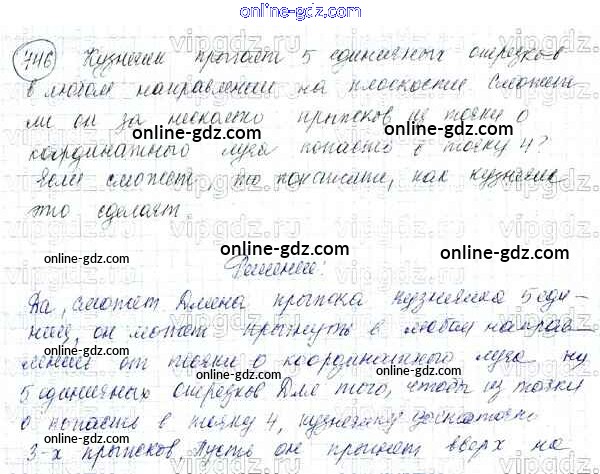 746 Кузнечик прыгает 5 единичных отрезков
в любом направлении на плоскости. Сможет
ли он за несколько прыжков из точки 0
координатного луча попасть в точку 4?
Если сможет, то покажите, как кузнечик
это сделает.
Решение:
Да, сможет. Длина прыжка кузнечика 5 еди-
ниц, он может прыгнуть в любом направ-
лении от точки 0 координатного луча на
5 единичных отрезков. Для того, чтобы из точки
0 попасть в точку 4, кузнечику достаточно
3-х прыжков. Пусть он прыгает вверх на
online-gdz.com
online-gdz.com
online-gdz.com
online-gdz.com
online-gdz.com
online-gdz.com
online-gdz.com
online-gdz.com
online-gdz.com
online-gdz.com
online-gdz.com